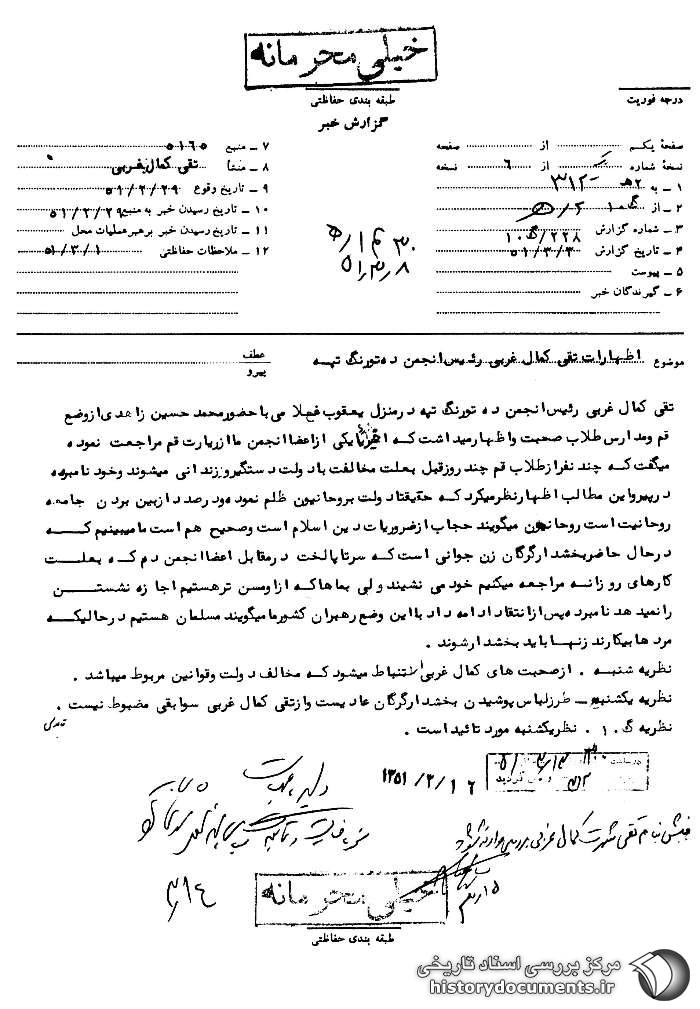 خیلی محرمانه
طبقه بندی حفاظتی
درجه فوریت
گزارش خبر
صفحهٔ یکم از صفحه
نسخهٔ شماره از ۶ نسخه
۱ ـ به ۳۱۲
۲ ـ از
۳ ـ شماره گزارش ۲۲۸/ ﮔ ۱۰
۴ ـ تاریخ گزارش ۵۱/۳/۳
۵ ـ پیوست
۶ ـ گیرندگان خبر
۷ ـ منبع ۵۱۶۵
۸ ـ منشأ تقی کمال غربی
۹ ـ تاریخ وقوع ۵۱/۲/۲۹
۱۰ ـ تاریخ رسیدن خبر به منبع ۵۱/۲/۲۹
۱۱ ـ تاریخ رسیدن خبر برهبر عملیات محل
۱۲ ـ ملاحظات حفاظتی ۵۱/۳/۱
موضوع اظهارات تقی کمال غربی رئیس انجمن ده تورنگ تپه
عطف
پیرو
تقی کمال غربی رئیس انجمن ده تورنگ تپه درمنزل یعقوب فعلا می با حضور محمد حسین زاهدی از وضع
قم ومدارس طلاب صحبت واظهار میداشت که اخیرا یکی ازاعضا انجمن ما از زیارت قم مراجعت نموده
میگفت که چند نفراز طلاب قم چند روز قبل بعلت مخالفت با دولت دستگیر و زندانی میشوند وخود نامبرده
درپیرو این مطالب اظهارنظر میکرد که حقیقتا دولت بروحانیون ظلم نموده ودرصدد ازبین بردن جامعه
روحانیت است روحانیون میگویند حجاب ازضروریات دین اسلام است وصحیح هم است ما میبینیم که
درحال حاضر بخشدار گرگان زن جوانی است که سرتاپا لخت درمقابل اعضا انجمن ده که بعلت
کارهای روزانه مراجعه میکنیم خود می نشیند ولی بماها که ازاو مسن تر هستیم اجازه نشستن
را نمیدهد نامبرده پس ازانتقاد ادامه داد با این وضع رهبران کشور ما میگویند مسلمان هستیم درحالیکه
مردها بیکارند زنها باید بخشدار شوند .
نظریه شنبه . ازصحبت های کمال غربی استنباط میشود که مخالف دولت وقوانین مربوط میباشد .
نظریه یکشنبه ـ طرز لباس پوشیدن بخشدار گرگان عادیست واز تقی کمال غربی سوابقی مضبوط نیست .
نظریه ﮔ . ۱ . نظر یکشنبه مورد تائید است .
۱۳۵۱/۳/۱۶
خیلی محرمانه
طبقه بندی حفاظتی
مرکز بررسی اسناد تاریخی
historydocuments.ir